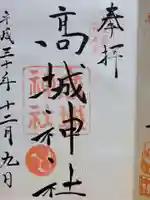 奉拝
高城神社
平成三十年十二月九日